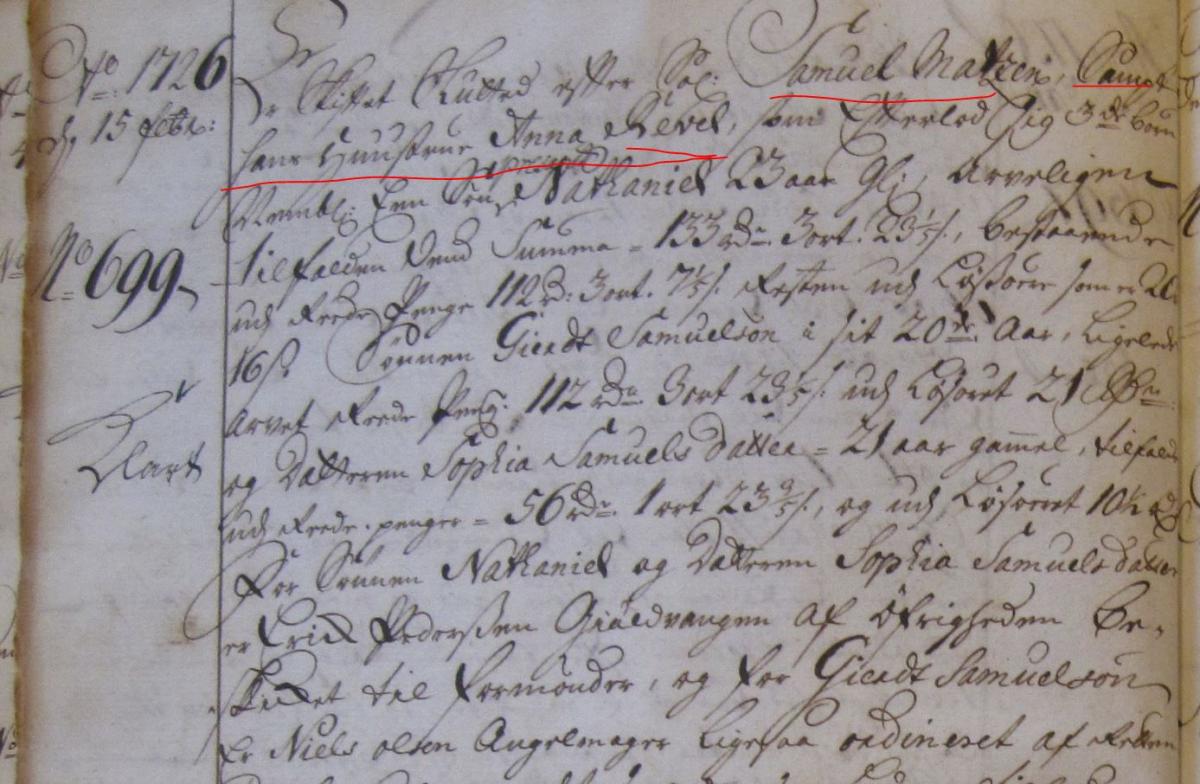 Ao 1726
d 15 febr:
No 699
Klart
Er Skiftet Slutted efter Sal: Samuel Matzen, Sampt
hans Huustrue Anna Revel, som Efterlod sig 3de børn
Nembl: Een Søn, Nathaniel 23 aar gl:, Arveligen
tilfalden dend Summa = 133 rdr. 3 ort. 23 1/5 s., bestaaende
udj Reede Penge 112 rd: 3 ort. 7 1/5 s. Resten udj Løsøere som er
16 s. Sønnen Gierdt Samuelson i sit 20de Aar, Ligeledes
Arvet Reede Peng: 112 rdr. 3 ort 23 1/5 s. udj Løsøret 21
og Datteren Sophia Samuels datter = 21 aar gammel, tilfalden
udj Reede penger = 56 rdr. 1 ort 23 s., og udj Løsøret 10½ rd
For Sønnen Nathaniel og Datteren Sophia Samuels datter
er Erich Pedersen Giældvangen af Øfrigheden be-
skicket til formønder, og for Gierdt Samuelsøn
Er Niels olsen Angelmager Ligesaa ordineret af Retten